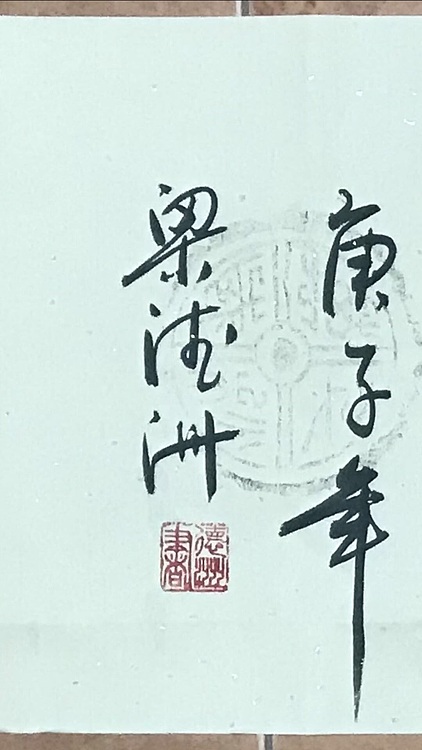 庚子年
梁德洲
德洲書